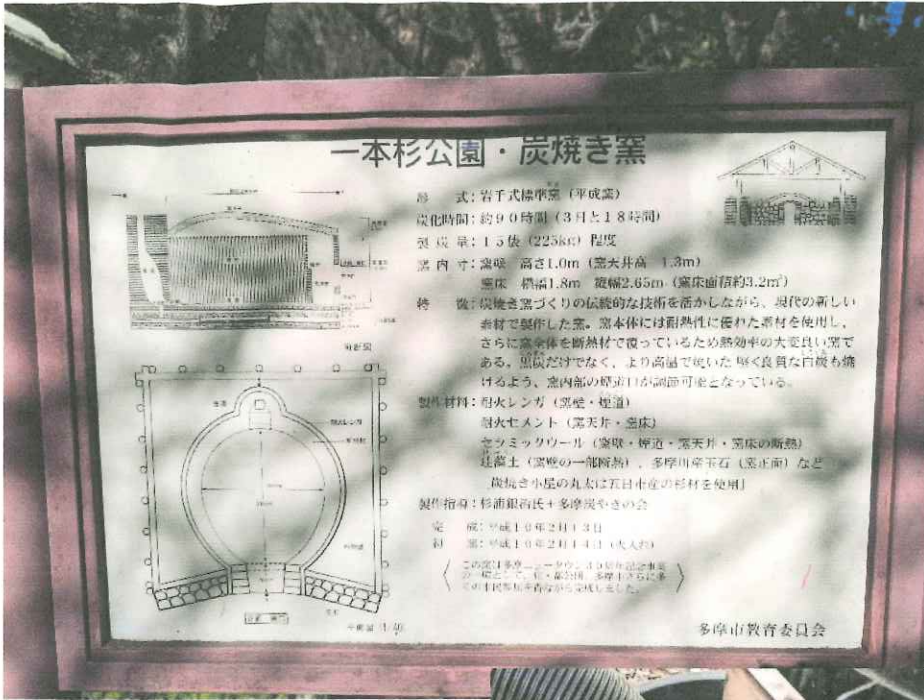 一本杉公園・炭焼き窯
形　式：岩手式標準窯（平成窯）
炭化時間：約90時間（3日と18時間）
製炭量：15俵（225kg）程度
窯内寸：窯壁　高さ1.0m（窯天井高　1.3m）
窯床　横幅1.8m　縦幅2.65m（窯床面積約3.2m²）
特　徴：炭焼き窯づくりの伝統的な技術を活かしながら、現代の新しい
素材で製作した窯。窯本体には耐熱性に優れた素材を使用し、
さらに窯全体を断熱材で覆っているため熱効率の大変良い窯で
ある。黒炭だけでなく、より高温で焼いた堅く良質な白炭も焼
けるよう、窯内部の煙道口が調節可能となっている。
製作材料：耐火レンガ（窯壁・煙道）
耐火セメント（窯天井・窯床）
セラミックウール（窯壁・煙道・窯天井・窯床の断熱）
珪藻土（窯壁の一部断熱）、多摩川産玉石（窯正面）など
炭焼き小屋の丸太は五日市産の杉材を使用
製作指導：杉浦銀治氏＋多摩炭やきの会
完　成：平成10年2月13日
初　窯：平成10年2月14日（火入れ）
多摩市教育委員会
耐火レンガ
断面図
平面図 1/40